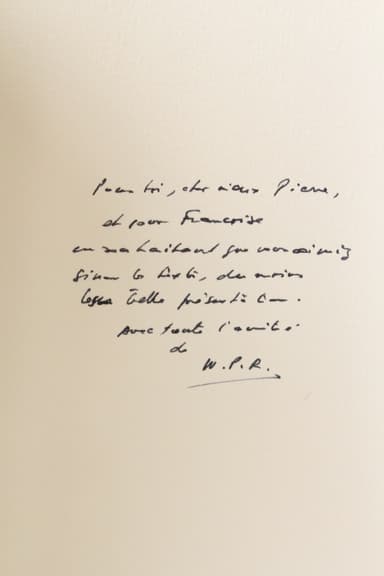 Pour toi, cher vieux Pierre,
et pour Françoise
en souhaitant que vous aimiez
sinon le texte, du moins
belle présentation.
avec toute l'amitié
de
W.P.R.